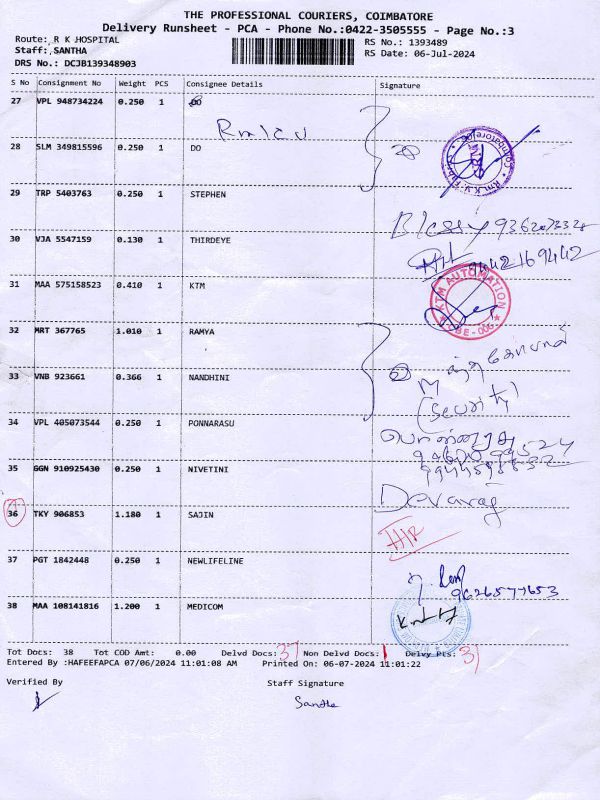 THE PROFESSIONAL COURIERS, COIMBATORE
Delivery Runsheet - PCA - Phone No.:0422-3505555 - Page No.:3
Route: R K HOSPITAL
RS No.: 1393489
Staff: SANTHA
RS Date: 06-Jul-2024
DRS No.: DCJB139348903
S No Consignment No Weight PCS Consignee Details Signature
27 VPL 948734224 0.250 1 DO
28 SLM 349815596 0.250 1 DO
29 TRP 5403763 0.250 1 STEPHEN
30 VJA 5547159 0.130 1 THIRDEYE
9442169442
31 MAA 575158523 0.410 1 KTM
KTM AUTOMATION
CBE-006
32 MRT 367765 1.010 1 RAMYA
33 VNB 923661 0.366 1 NANDHINI
(Security)
34 VPL 405073544 0.250 1 PONNARASU
35 GGN 910925430 0.250 1 NIVETINI
Devaraj
36 TKY 906853 1.180 1 SAJIN
37 PGT 1842448 0.250 1 NEWLIFELINE
9626577653
38 MAA 108141816 1.200 1 MEDICOM
Tot Docs: 38 Tot COD Amt: 0.00 Delvd Docs: 37 Non Delvd Docs: 1 Delvy Pts: 31
Entered By :HAFEEFAPCA 07/06/2024 11:01:08 AM Printed On: 06-07-2024 11:01:22
Verified By Staff Signature
Santha